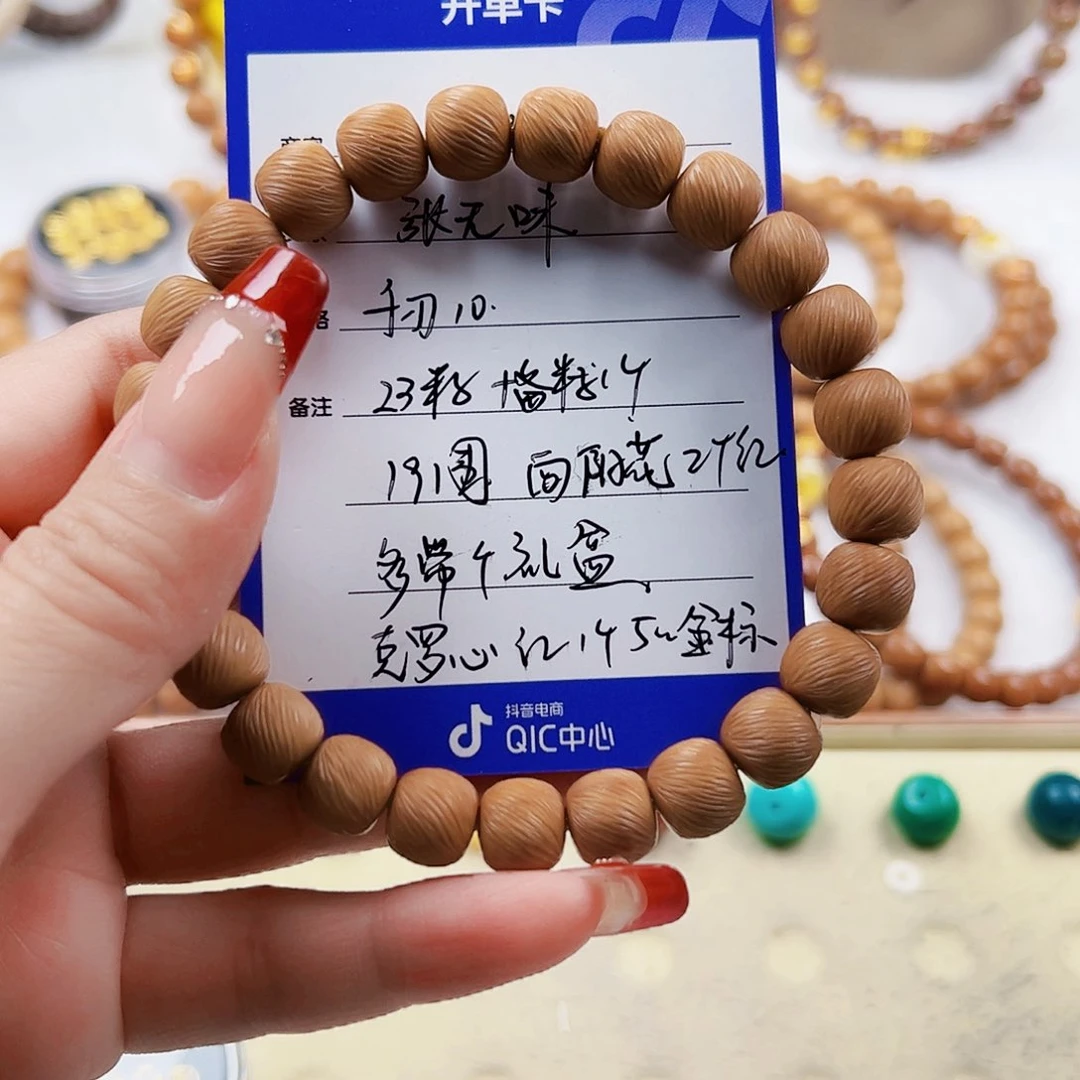 开单卡
张无味
手刃10.
备注 23粒 备粒1个
191围 向阳花2个红
多带个礼盒
克罗心红1个5u金标
抖音电商
QIC中心